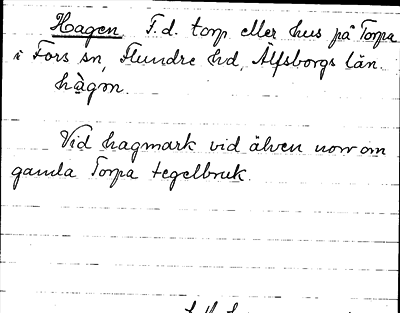 Hagen F.d. torp eller hus på Torpa
i Fors sn, Flundre hd, Älfsborgs län.
hàgɔn.
Vid hagmark vid älven norr om
gamla Torpa tegelbruk.